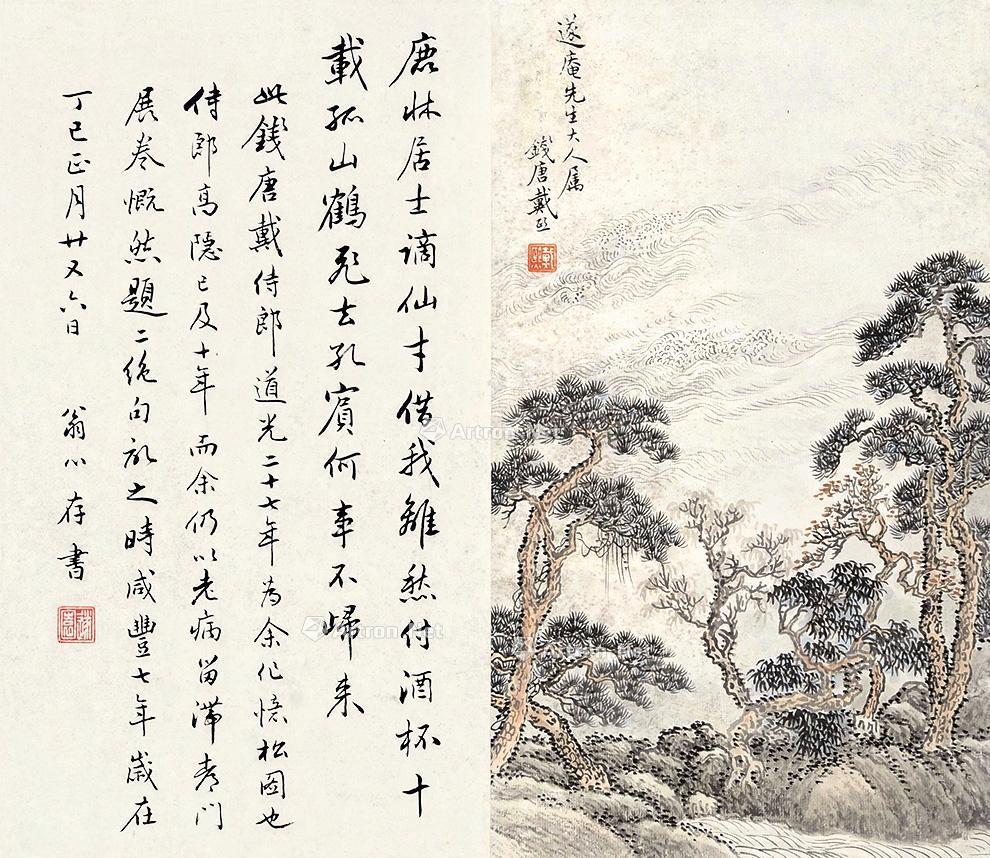 邃庵先生大人属
錢唐戴熙
鹿牀居士謫仙才借我離愁付酒杯十
載孤山鶴飛去孔賓何事不歸来
此錢唐戴侍郎道光二十七年為余作憶松圖也
侍郎高隱已及十年而余仍以老病留滯青門
展卷慨然題二絶句記之時咸豐七年歲在
丁巳正月廿又六日 翁心存書
Artron.Net
Artron.Net